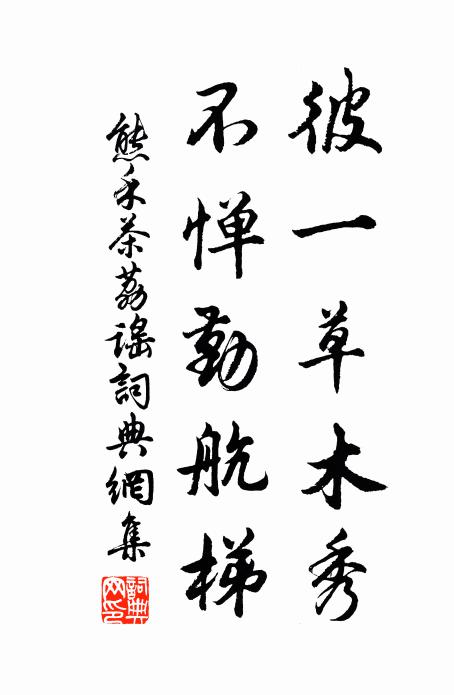 彼一草木秀
不惮勤航梯
熊禾茶荔謠詞典網集
詞典
网印